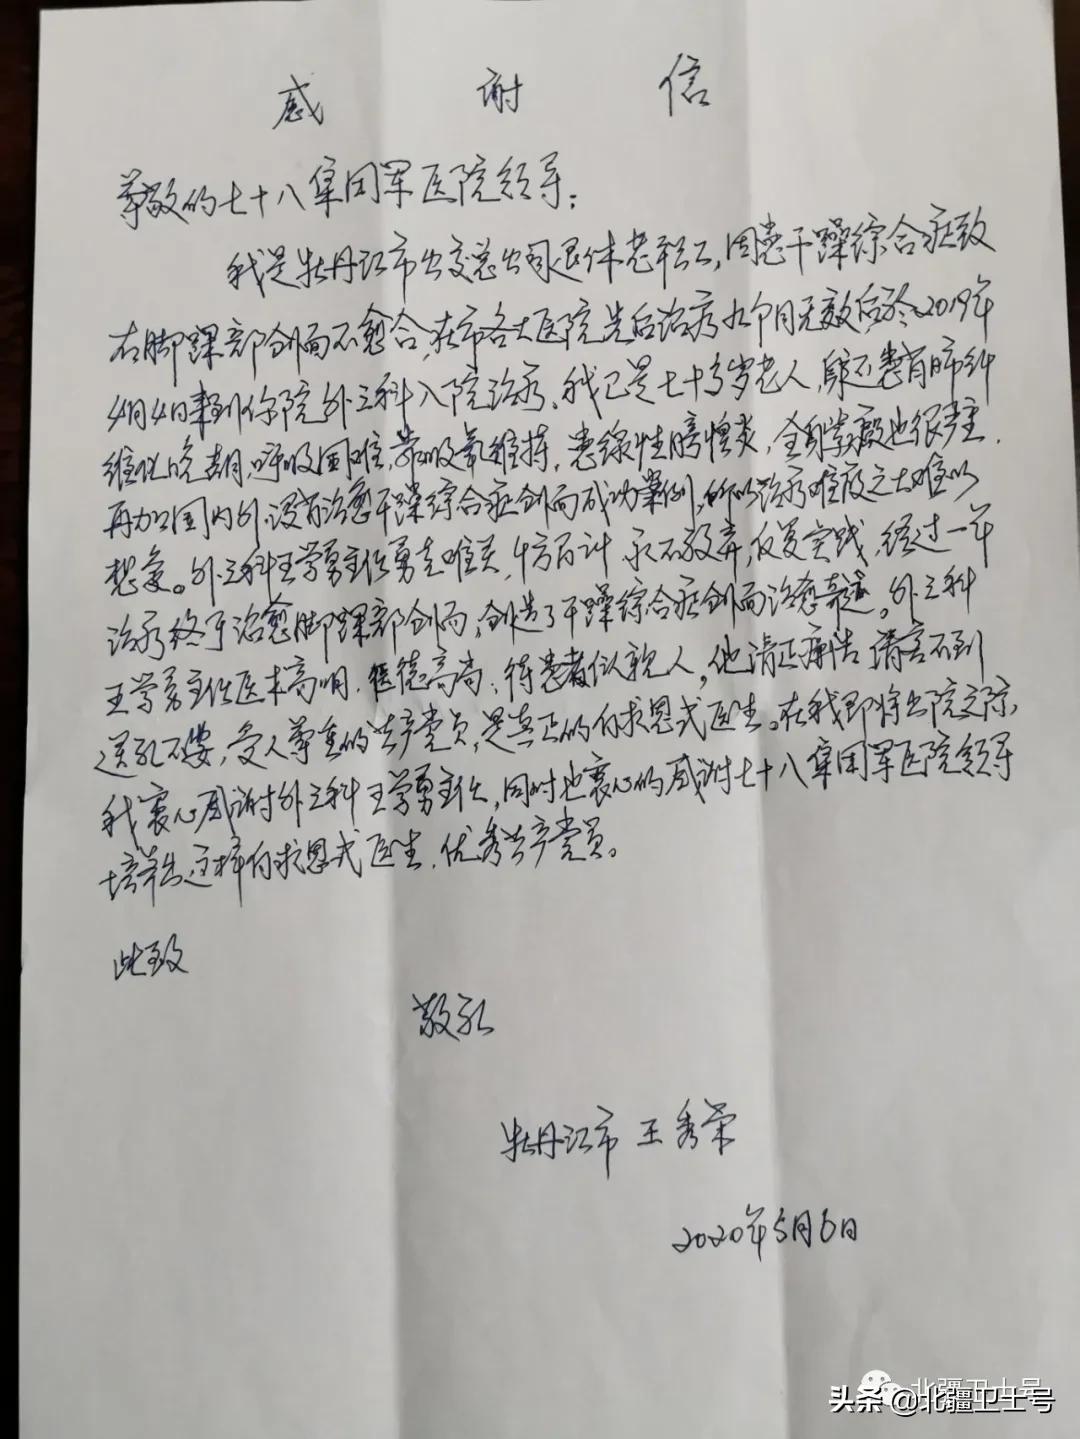 感谢信
尊敬的七十八集团军医院领导：
我是牡丹江市公交总公司退休老职工，因患干躁综合症致
右脚踝部创面不愈合，在市各大医院先后治疗九个月无效后於2019年
4月4日来到你院外三科入院治疗。我已是七十多岁老人，患有肺纤
维化晚期，呼吸困难，靠吸氧维持，患缐性膀恍炎，全身也很严重，
再加上国内外没有治愈干躁综合症创面成功案例，所以治疗难度之大难以
想象。外三科王学勇主任勇克难关，千方百计永不放弃，反复实践，经过一年
治疗终于治愈脚踝部创面，创造了干躁综合症创面治愈奇迹。外三科
王学勇主任医术高明，医德高尚，待患者似亲人，他清正廉洁请客不到
送礼不要，受人尊重的共产党员，是真正的白求恩式医生。在我即将出院之际，
我衷心感谢外三科王学勇主任，同时也衷心的感谢七十八集团军医院领导
培养出这样白求恩式医生，优秀共产党员。
此致
敬礼
牡丹江市 王秀荣
2020年5月6日
北疆卫士号
头条@北疆卫士号